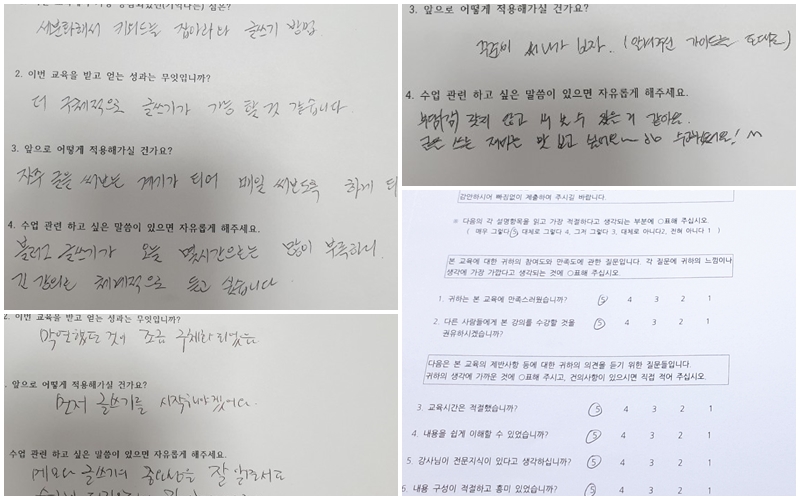 세분화해서 키워드를 잡아라와 글쓰기 방법
2. 이번 교육을 받고 얻는 성과는 무엇입니까?
더 구체적으로 글쓰기가 가능 할 것 같습니다.
3. 앞으로 어떻게 적용해가실 건가요?
자주 글을 써보는 계기가 되어 매일 써보도록 하게 되
4. 수업 관련 하고 싶은 말씀이 있으면 자유롭게 해주세요.
블러그 글쓰기가 오늘 몇시간으로는 많이 부족하니
긴 강의로 체계적으로 듣고 싶습니다
2. 이번 교육을 받고 얻는 성과는 무엇입니까?
막연했던 것이 조금 구체화 되었음
앞으로 어떻게 적용해가실 건가요?
먼저 글쓰기를 시작해야겠어요.
수업 관련 하고 싶은 말씀이 있으면 자유롭게 해주세요.
메모와 글쓰기의 중요성을 잘 알려주셔서
3. 앞으로 어떻게 적용해가실 건가요?
꾸준히 써나가 보자.
4. 수업 관련 하고 싶은 말씀이 있으면 자유롭게 해주세요.
부담(감) 갖지 않고 써 볼 수 있는 거 같아요.
글을 쓰는 재미를 맛 보고 수고하셨어요!
감안하시어 빠짐없이 제출하여 주시길 바랍니다.
※ 다음의 각 설명항목을 읽고 가장 적절하다고 생각되는 부분에 ○표해 주십시오.
( 매우 그렇다 5, 대체로 그렇다 4, 그저 그렇다 3, 대체로 아니다2, 전혀 아니다 1 )
본 교육에 대한 귀하의 참여도와 만족도에 관한 질문입니다. 각 질문에 귀하의 느낌이나
생각에 가장 가깝다고 생각되는 것에 ○표해 주십시오.
1. 귀하는 본 교육에 만족스러웠습니까? 5 4 3 2 1
2. 다른 사람들에게 본 강의를 수강할 것을 5 4 3 2 1
권유하시겠습니까?
다음은 본 교육의 제반사항 등에 대한 귀하의 의견을 듣기 위한 질문들입니다.
귀하의 생각에 가까운 것에 ○표해 주시고, 건의사항이 있으시면 직접 적어 주십시오.
3. 교육시간은 적절했습니까? 5 4 3 2 1
4. 내용을 쉽게 이해할 수 있었습니까? 5 4 3 2 1
5. 강사님이 전문지식이 있다고 생각하십니까? 5 4 3 2 1
6. 내용 구성이 적절하고 흥미 있었습니까? 5 4 3 2 1